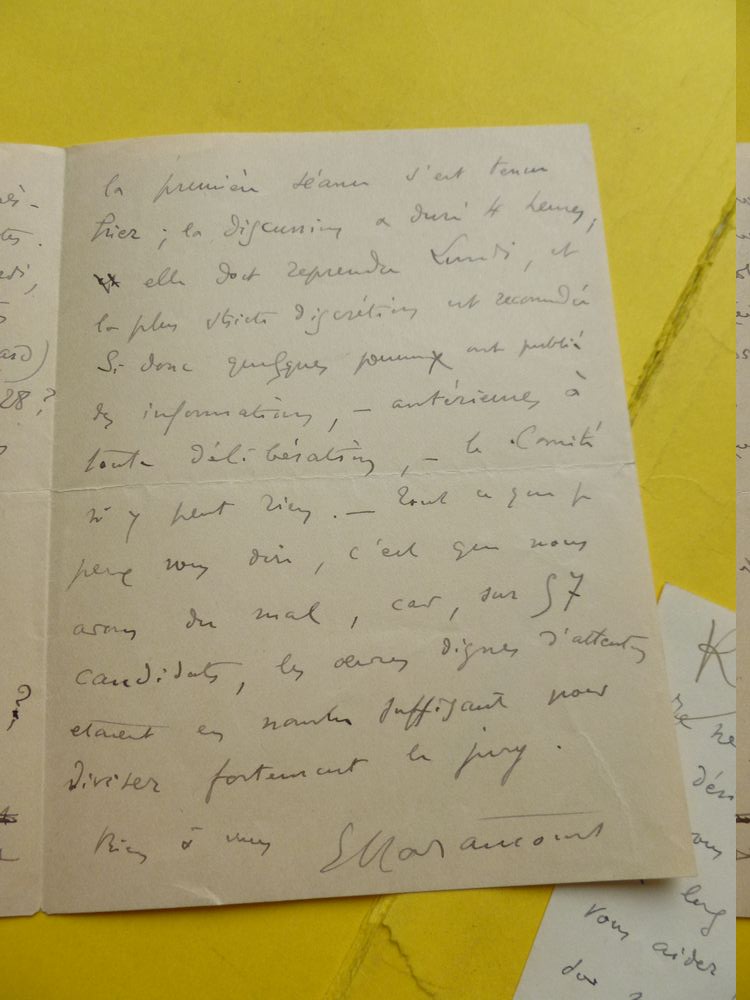 la première séance s'est tenue
hier ; la discussion a duré 4 heures,
elle doit reprendre Lundi, et
la plus stricte discrétion est recommandée
Si donc quelques journaux ont publié
des informations, — antérieures à
toute délibération, — le Comité
n'y peut rien. — Tout ce que je
peux vous dire, c'est que nous
avons du mal, car, sur 57
candidats, les œuvres dignes d'attention
étaient en nombre suffisant pour
diviser fortement le jury.
Bien à vous
EHaraucourt
28 ?
?
K
dés
vous
long
vous aider